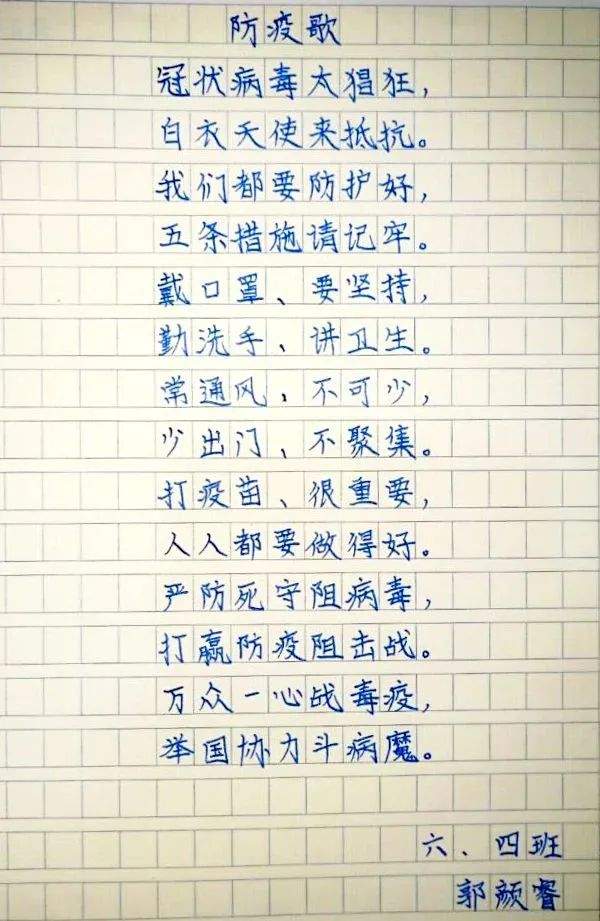 防疫歌
冠状病毒太猖狂，
白衣天使来抵抗。
我们都要防护好，
五条措施请记牢。
戴口罩、要坚持，
勤洗手、讲卫生。
常通风、不可少，
少出门、不聚集。
打疫苗、很重要，
人人都要做得好。
严防死守阻病毒，
打赢防疫阻击战。
万众一心战毒疫，
举国协力斗病魔。
六、四班
郭颜睿